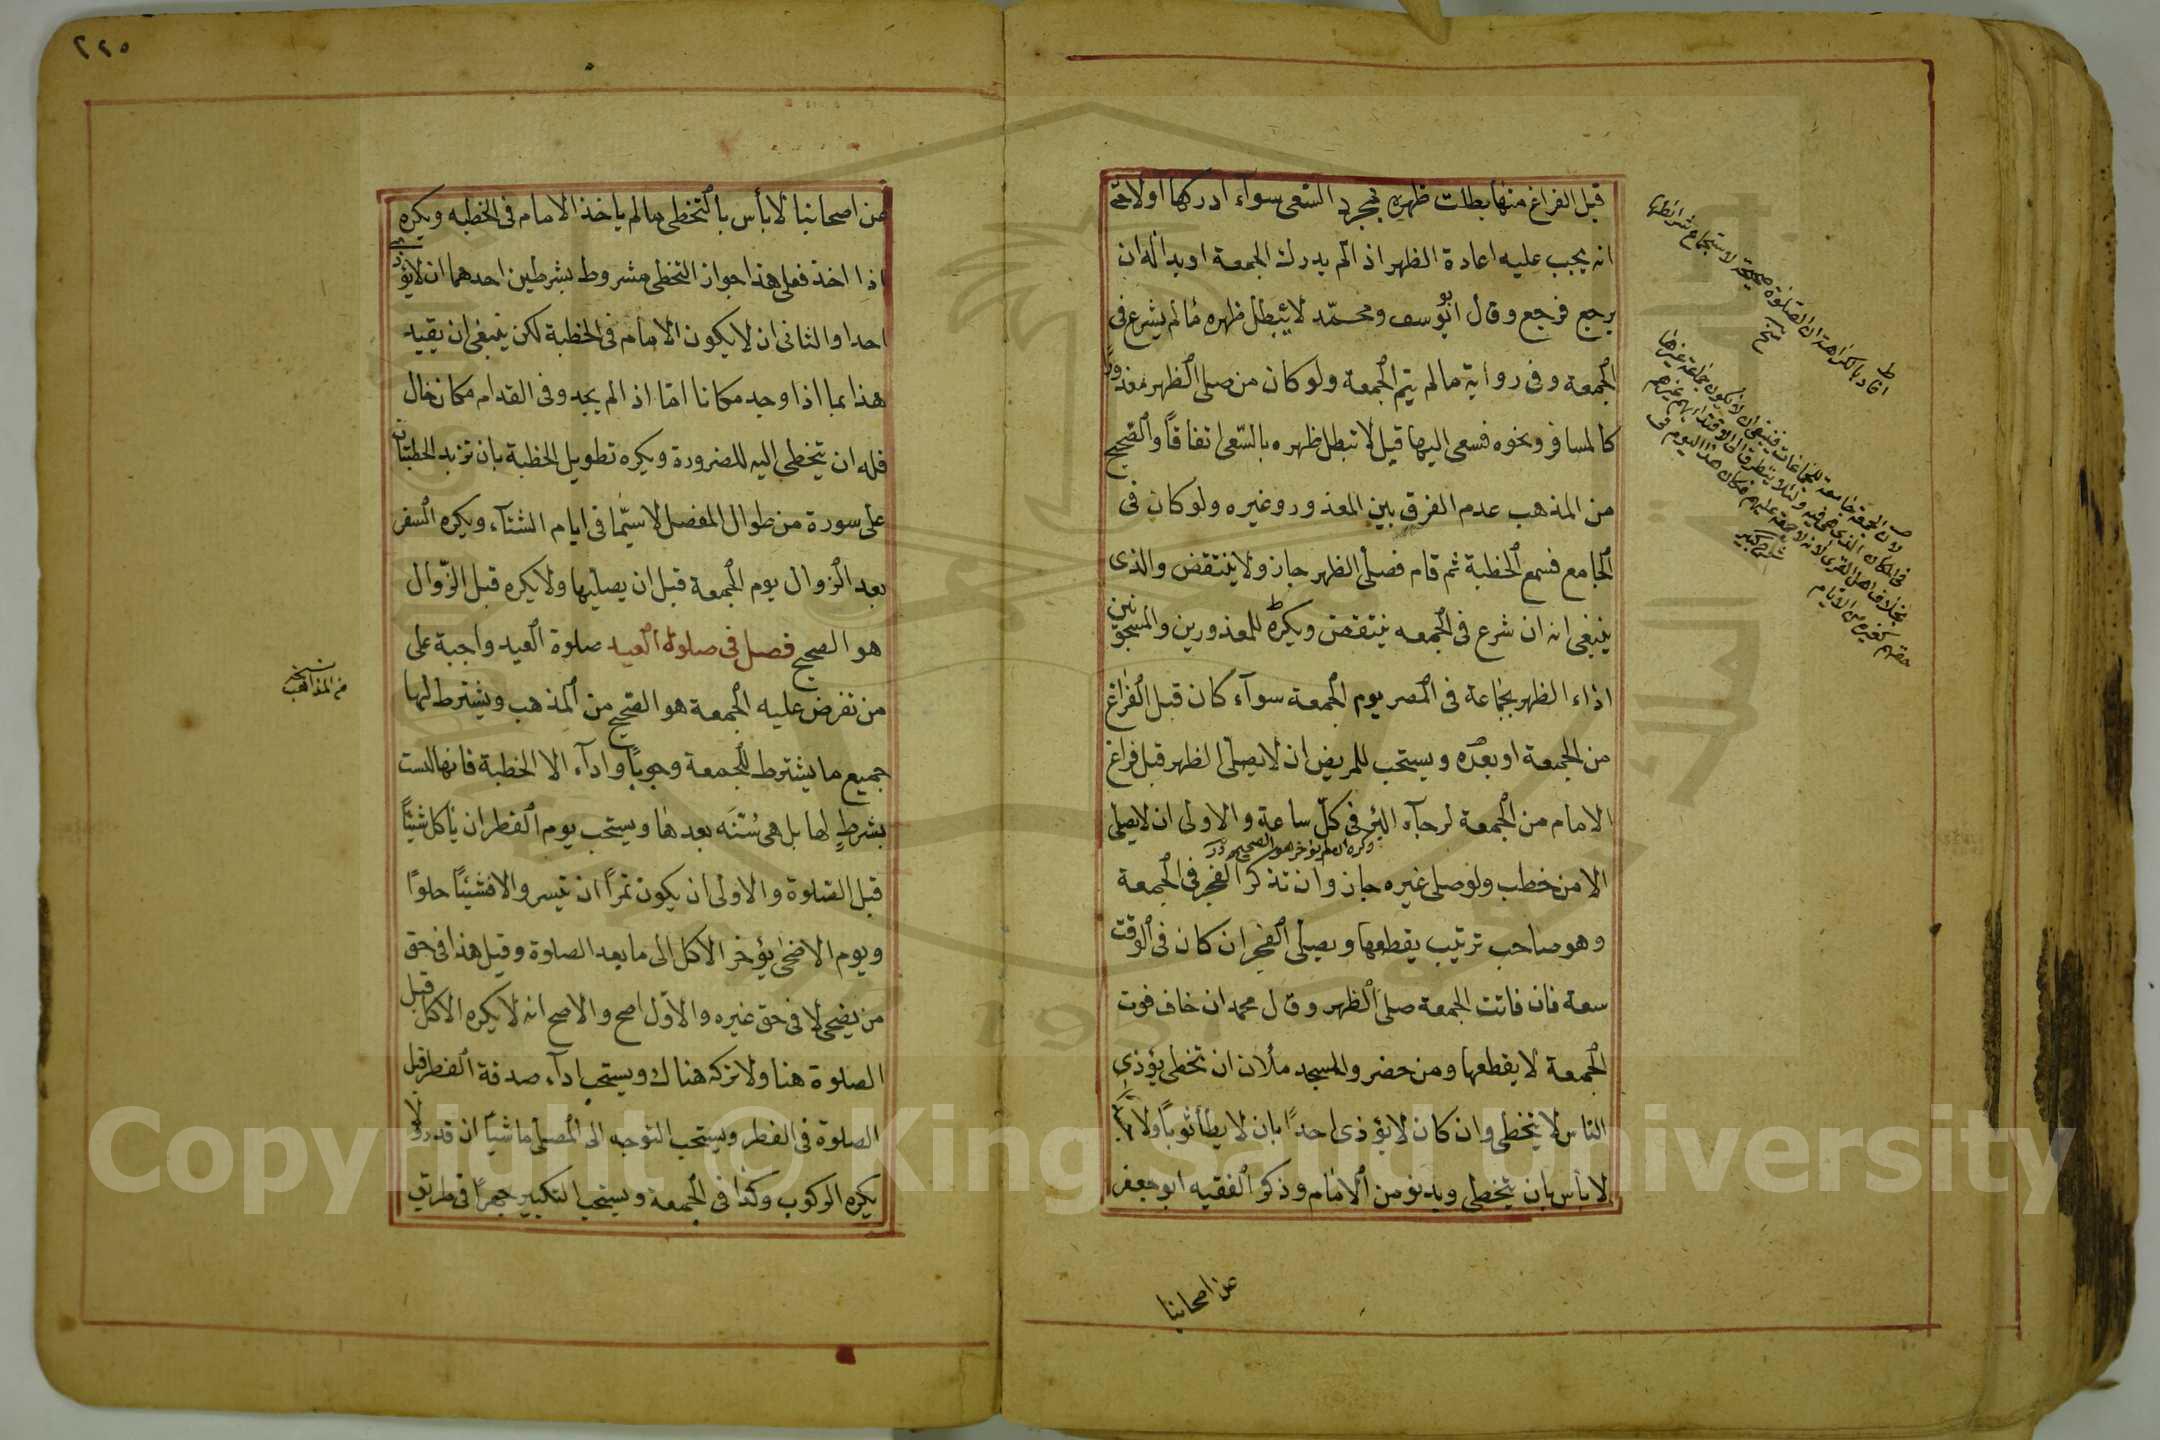 قبل الفراغ منها بطلت ظهره بمجرد السعى سوآء ادركها اولا حتى
انه يجب عليه اعادة الظهر اذ الم يدرك الجمعة او بدا له ان
يرجع فرجع وقال ابو يوسف ومحمّد لا يبطل ظهره ما لم يشرع فى
الجمعة وفى رواية ما لم يتم الجمعة ولو كان من صلى الظهر معذورًا
كالمسافر ونحوه فسعى اليها قيل لا تبطل ظهره بالسّعى اتفاقاً والصحيح
من المذهب عدم الفرق بين المعذور وغيره ولو كان فى
الجامع فسمع الخطبة ثم قام فصلى الظهر جاز ولا ينتقض والذى
ينبغى انه ان شرع فى الجمعه ينتقض ويكره للمعذورين والمسجونين
اداء الظهر بجماعة فى المصر يوم الجمعة سوآء كان قبل الفراغ
من الجمعة او بعده ويستحب للمريض ان لا يصلى الظهر قبل فراغ
الامام من الجمعة لرجآء البرء فى كلّ ساعة والاولى ان لا يصلى
وكره ان لم يؤخر هو الصحيح در
الا من خطب ولو صلى غيره جاز وان تذكر الفجر فى الجمعة
وهو صاحب ترتيب يقطعها ويصلى الفجر ان كان فى الوقت
سعة فان فاتت الجمعة صلى الظهر وقال محمد ان خاف فوت
الجمعة لا يقطعها ومن حضر والمسجد ملآن ان تخطى يؤذى
الناس لا يتخطى وان كان لا يؤذى احدًا بان لا يطأ ثوبًا ولا
لا بأس بان يتخطى ويدنو من الامام وذكر الفقيه ابو جعفر
عن اصحابنا
افاد بالكراهة ان الصلوة صحيحة لاستجماع شرائطها
شيخ
لان الجمعة جامعة للجماعات فينبغى ان لا يكون جماعة غيرها
شرح كبير
٢٢٥
من اصحابنا لا بأس بالتخطى ما لم ياخذ الامام فى الخطبه ويكره
اذا اخذ فعلى هذا جواز التخطى مشروط بشرطين احدهما ان لا يؤذى
احدا والثانى ان لا يكون الامام فى الخطبة لكن ينبغى ان يقيد
هذا بما اذا وجد مكانا امّا اذ الم يجد وفى القدام مكان خال
فله ان يتخطى اليه للضرورة ويكره تطويل الخطبة بان تزيد الخطبتان
على سورة من طوال المفصل لا سيّما فى ايام الشتآء ويكره السفر
بعد الزوال يوم الجمعة قبل ان يصليها ولا يكره قبل الزّوال
هو الصحيح فصل فى صلوة العيد صلوة العيد واجبة على
من تفرض عليه الجمعة هو الصحيح من المذهب ويشترط لها
جميع ما يشترط للجمعة وجوبًا وادآء الا الخطبة فانها ليست
بشرطٍ لها بل هى سُنّة بعدها ويستحب يوم الفطر ان يأكل شيئًا
قبل الصلوة والاولى ان يكون تمرًا ان تيسر والا فشيئًا حلوًا
ويوم الاضحى يؤخر الاكل الى ما بعد الصلوة وقيل هذا فى حق
من يضحى لا فى حق غيره والاوّل اصح والاصح انه لا يكره الاكل قبل
الصلوة هنا ولا تركه هناك ويستحب ادآء صدقة الفطر قبل
الصلوة فى الفطر ويستحب التوجه الى المصلى ماشيًا ان قدر ولا
يكره الركوب وكذا فى الجمعة ويستحب التكبير جهرًا فى طريق
نسخه
من المذاهب
Copyright © King Saud University